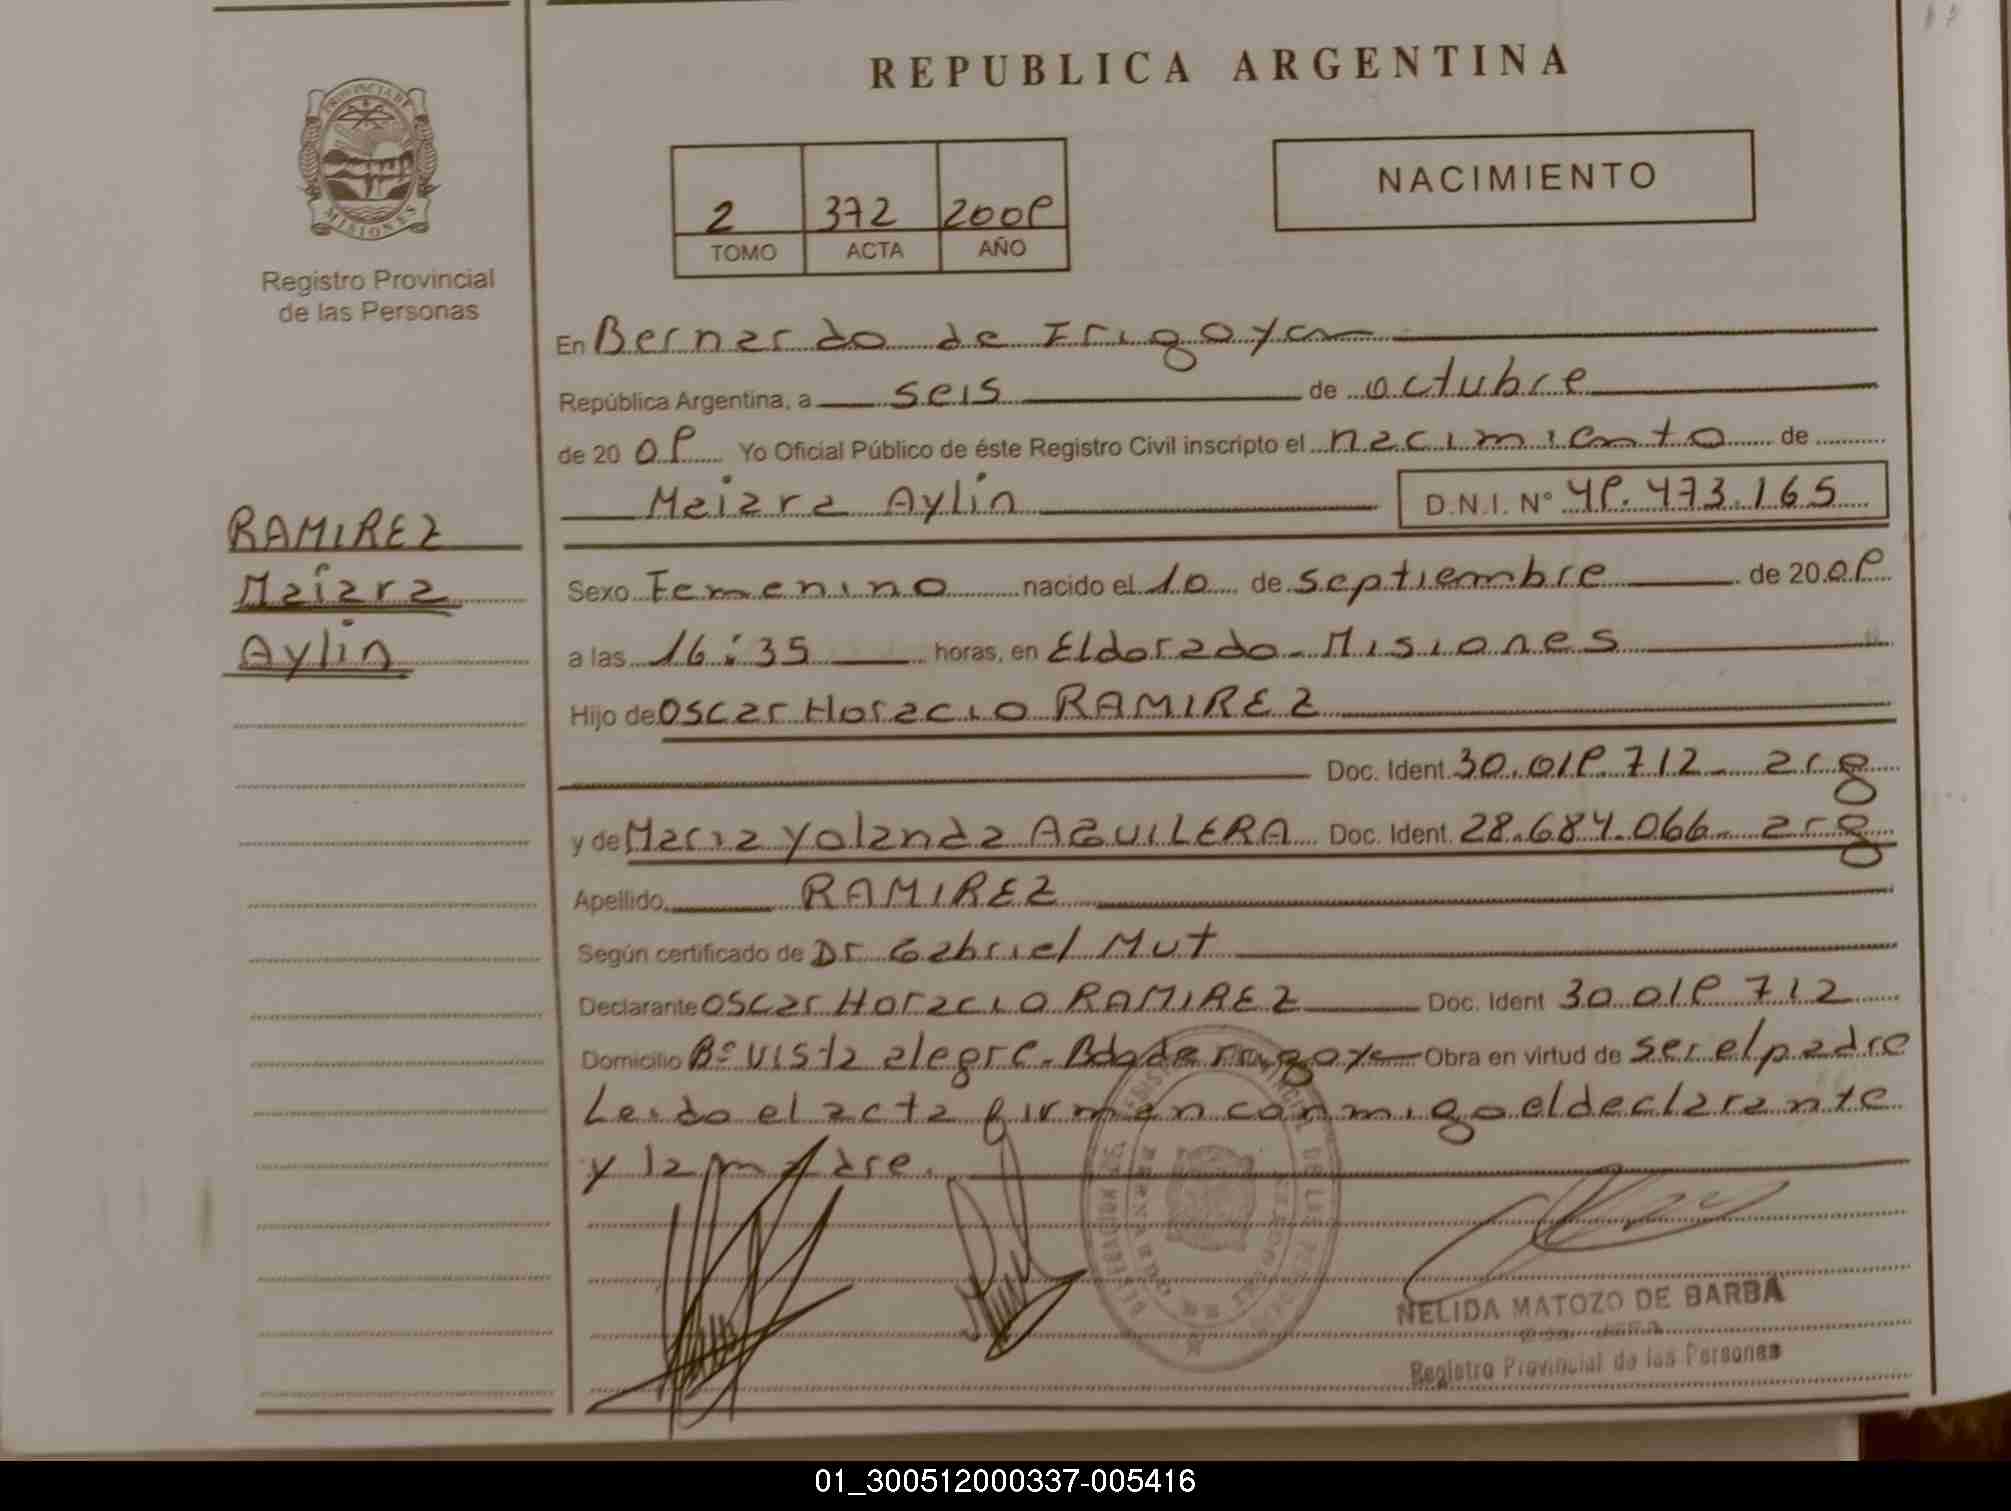 REPUBLICA ARGENTINA
PROVINCIA DE
MISIONES
Registro Provincial
de las Personas
2 372 2009
TOMO ACTA AÑO
NACIMIENTO
En Bernardo de Irigoyen
República Argentina, a seis de octubre
de 2009 Yo Oficial Público de éste Registro Civil inscripto el nacimiento de
Maiara Aylin D.N.I. Nº 49.473.165
RAMIREZ
Maiara
Aylin
Sexo Femenino nacido el 10 de septiembre de 2009
a las 16:35 horas, en Eldorado - Misiones
Hijo de Oscar Horacio RAMIREZ
Doc. Ident. 30.019.712 - arg
y de Maria Yolanda AGUILERA Doc. Ident. 28.684.066 - arg
Apellido RAMIREZ
Según certificado de Dr Gabriel Mut
Declarante Oscar Horacio RAMIREZ Doc. Ident 30.019.712
Domicilio Bº Vista alegre - Bdo de Irigoyen Obra en virtud de ser el padre
Leido el acta firman conmigo el declarante
y la madre.
NELIDA MATOZO DE BARBA
Registro Provincial de las Personas
01_300512000337-005416